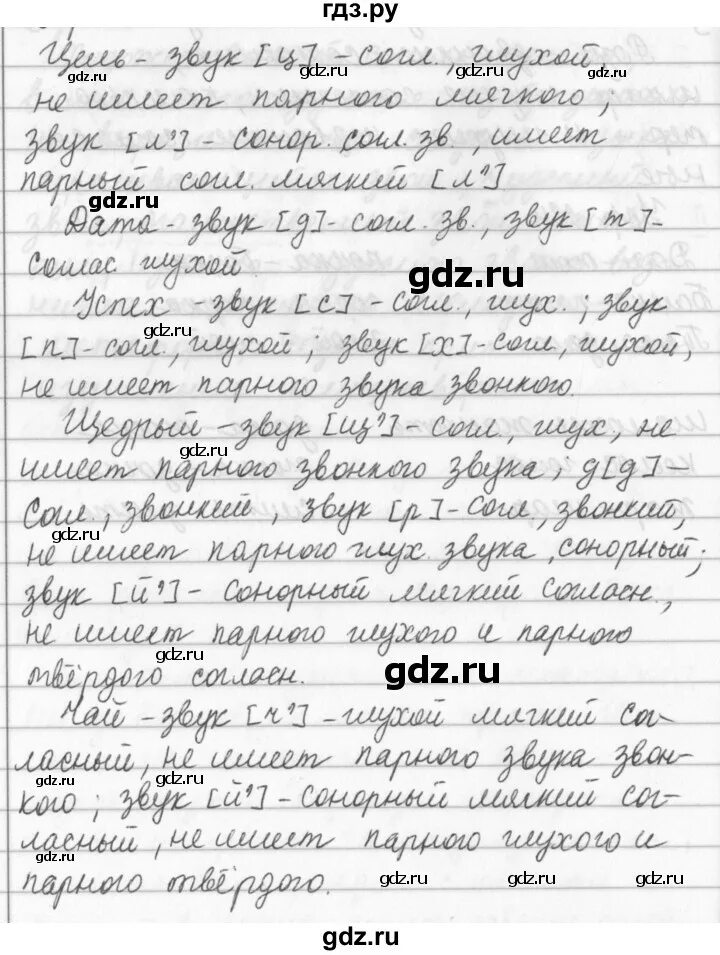 гдз.ру
Цель - звук [ц] - согл., глухой,
gdz.ru gdz.ru
не имеет парного мягкого;
звук [л'] - сонор. согл. зв., имеет
парный согл. мягкий [л']
gdz.ru gdz.ru
Дата - звук [д] - согл. зв., звук [т] -
соглас. глухой.
gdz.ru
Успех - звук [с] - согл., глух.; звук
gdz.ru gdz.ru
[п] - согл., глухой; звук [х] - согл., глухой,
не имеет парного звука звонкого.
Щедрый - звук [щ'] - согл., глух., не
gdz.ru gdz.ru
имеет парного звонкого звука; д [д] -
согл., звонкий, звук [р] - согл., звонкий,
gdz.ru gdz.ru
не имеет парного глух. звука, сонорный;
звук [й'] - сонорный мягкий согласн.,
gdz.ru gdz.ru
не имеет парного глухого и парного
твёрдого согласн.
gdz.ru
Чай - звук [ч'] - глухой мягкий со-
gdz.ru gdz.ru
гласный, не имеет парного звука звон-
gdz.ru gdz.ru
кого; звук [й'] - сонорный мягкий сог-
ласный, не имеет парного глухого и
gdz.ru
парного твёрдого.
gdz.ru gdz.ru gdz.ru
gdz.ru